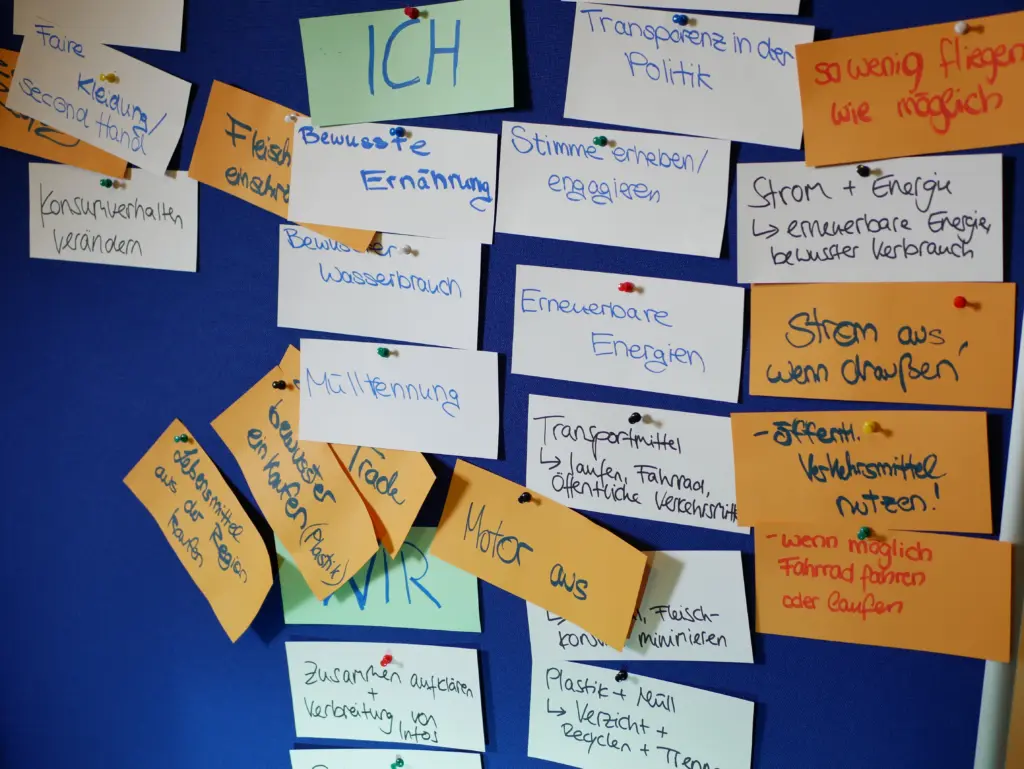 Faire
Kleidung/
second Hand
Konsumverhalten
verändern
ICH
Fleisch
einschrä
Bewusste
Ernährung
Bewusster
Wasserbrauch
Mülltennung
Transparenz in der
Politik
Stimme erheben/
engagieren
Erneuerbare
Energien
so wenig fliegen
wie möglich
Strom + Energie
↳ erneuerbare Energie,
bewusster Verbrauch
Strom aus,
wenn draußen!
Transportmittel
↳ laufen, Fahrrad,
öffentliche Verkehrsmitt
- öffentl.
Verkehrsmittel
nutzen!
- wenn möglich
Fahrrad fahren
oder laufen
Lebensmittel
aus der Region
kaufen
bewusster
einkaufen (Plastik)
Trade
Motor aus
WIR
Fleisch-
minimieren
Zusammen aufklären
+
Verbreitung von
Infos
Plastik + Müll
↳ Verzicht +
Recyclen + Trenn